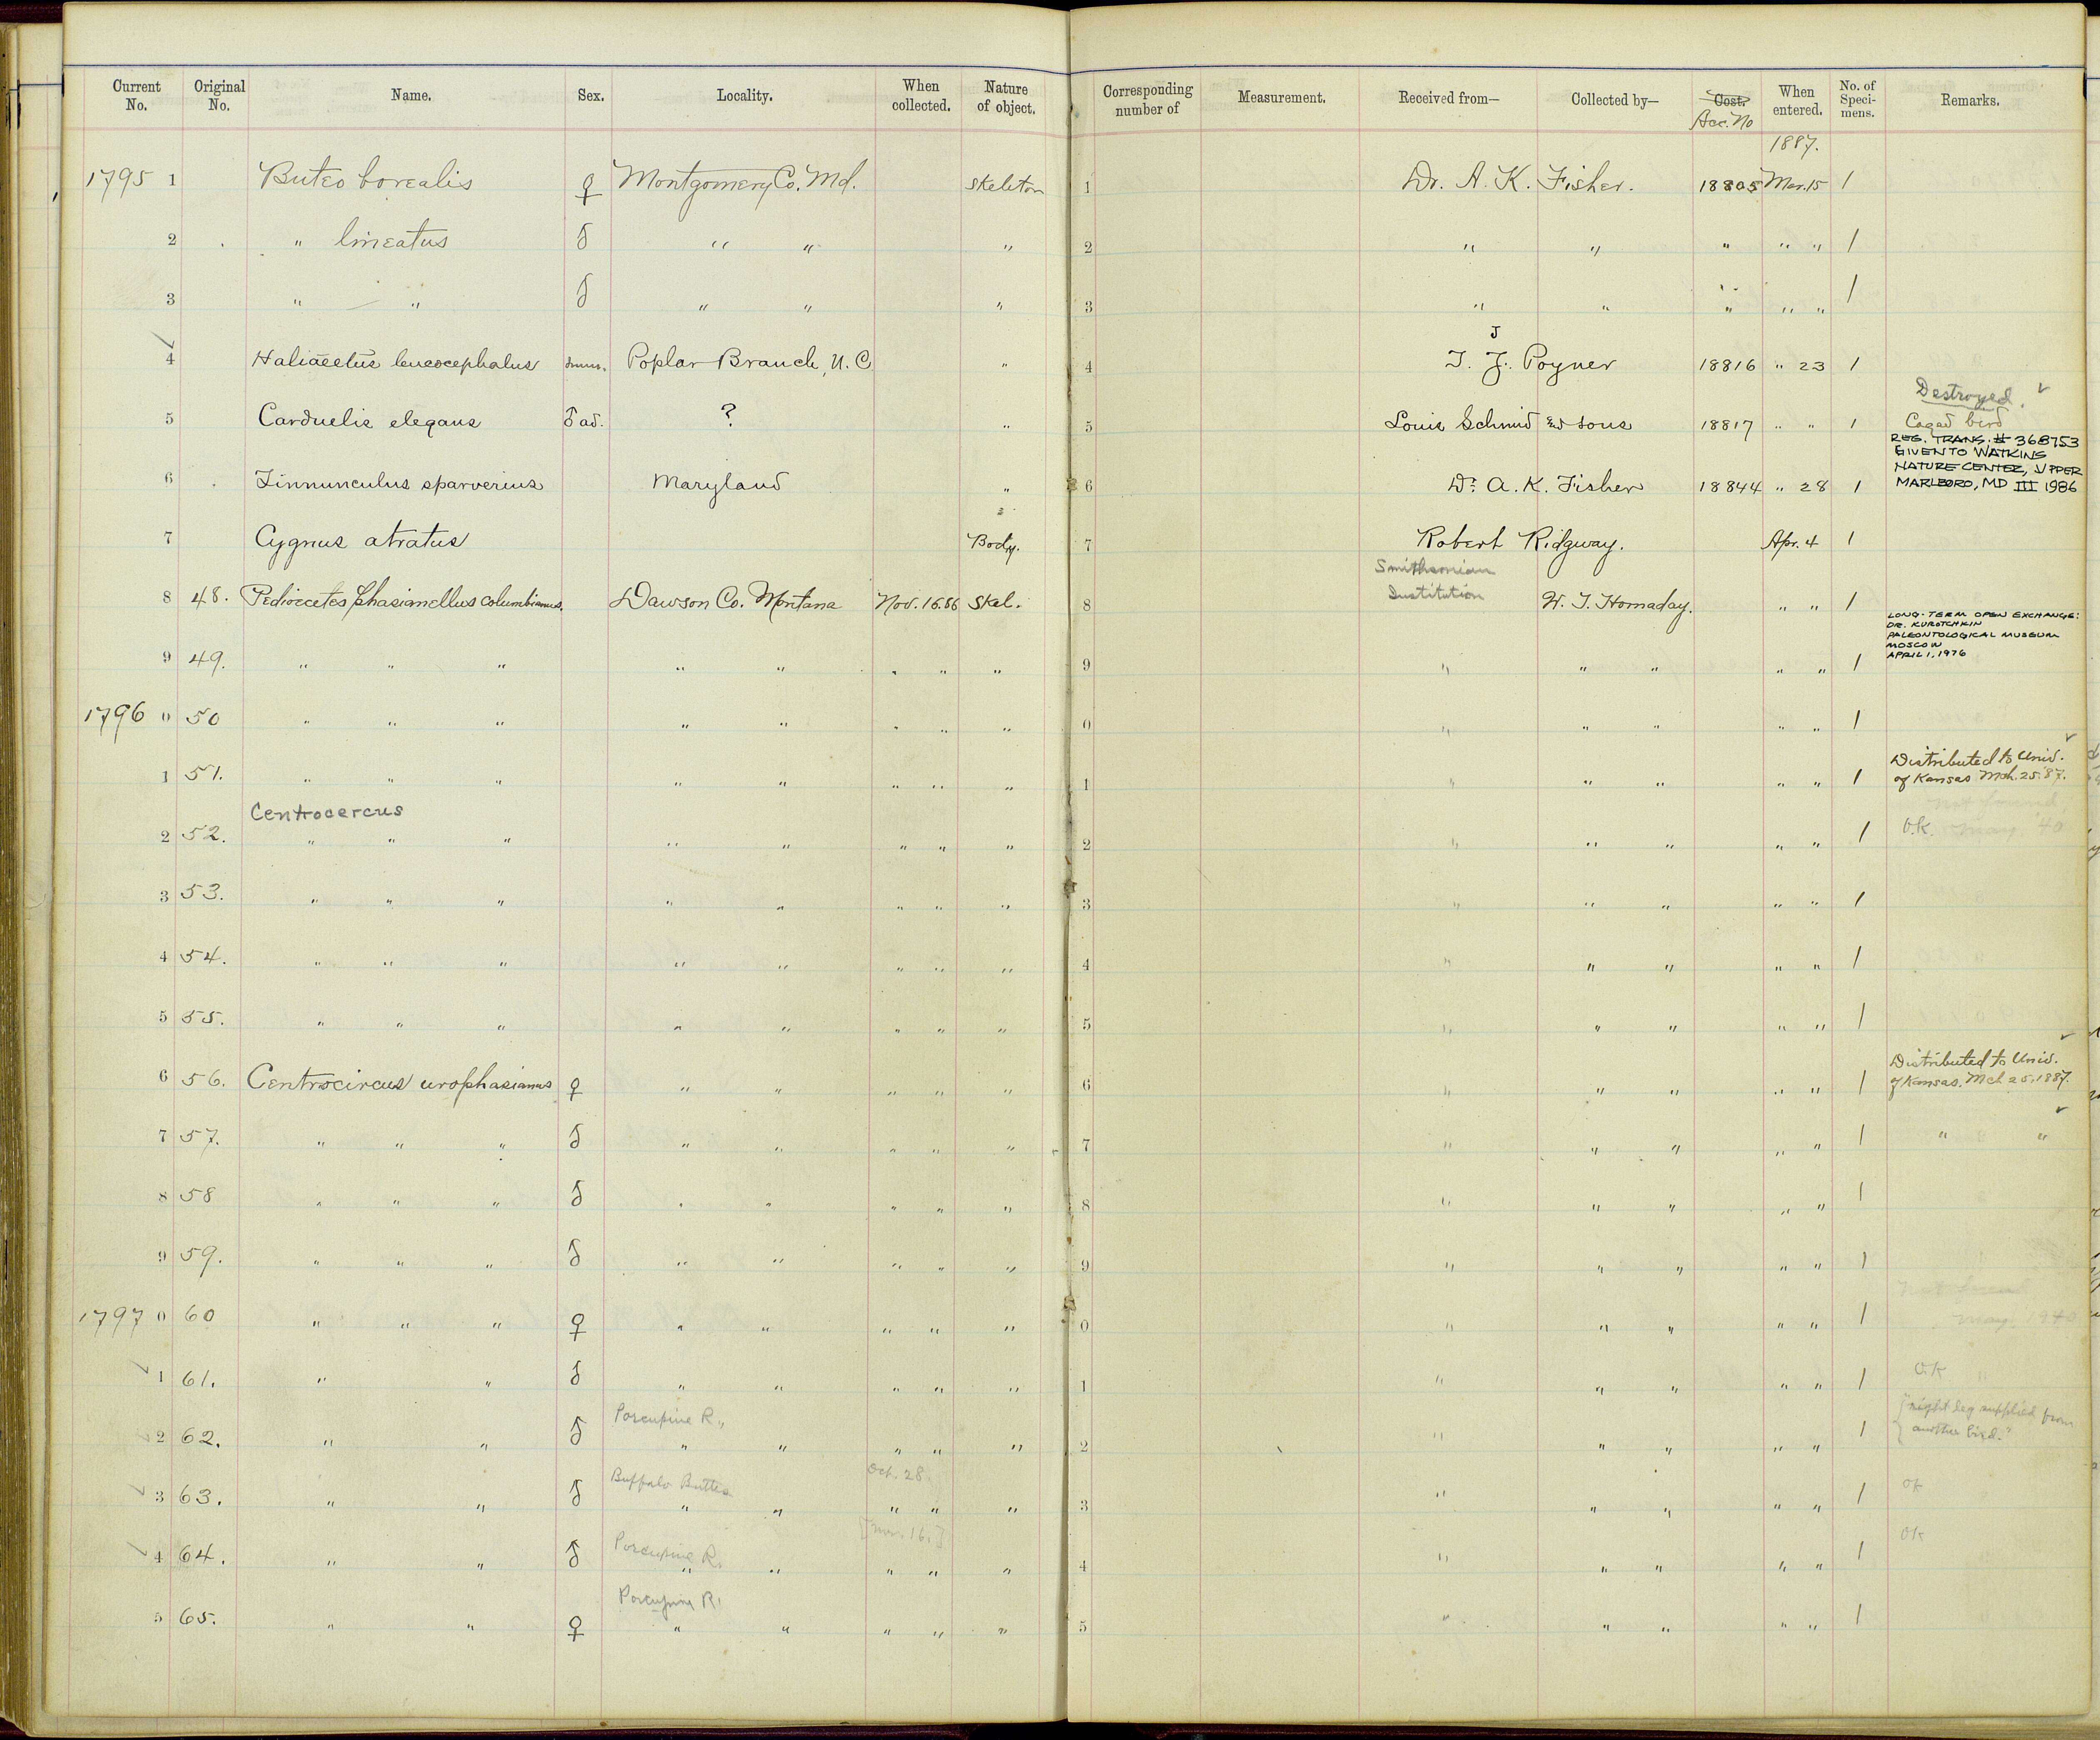 Current No. Original No. Name. Sex. Locality. When collected. Nature of object. Corresponding number of Measurement. Received from— Collected by— Cost. Acc. No When entered. No. of Speci- mens. Remarks.
1887.
1795 1 Buteo borealis ♀ Montgomery Co. Md. Skeleton 1 Dr. A. K. Fisher. 18805 Mar. 15 1
2 " lineatus ♂ " " " 2 " " " " " 1
3 " " ♂ " " " 3 " " " " " 1
4 Haliaeetus leucocephalus Poplar Branch, N. C " 4 T. J. Poyner 18816 " 23 1
5 Carduelis elegans ♂ ad. ? " 5 Louis Schmid and sons 18817 " " 1 Destroyed. Caged bird
6 Tinnunculus sparverius Maryland " 6 Dr. A. K. Fisher 18844 " 28 1 REG. TRANS. # 368753
GIVEN TO WATKINS
NATURE CENTER, UPPER
MARLBORO, MD III 1986
7 Cygnus atratus Body. 7 Robert Ridgway. Apr. 4 1
8 48. Pedioecetes phasianellus columbianus. Dawson Co. Montana Nov. 16. 86 Skel. 8 Smithsonian Institution W. T. Hornaday. " " 1
LONG-TERM OPEN EXCHANGE:
DR. KUROTCHKIN
PALEONTOLOGICAL MUSEUM
MOSCOW
APRIL 1, 1976
9 49. " " " " " " " " 9 " " " " " 1
1796 0 50 " " " " " " " " 0 " " " " " 1
1 51. " " " " " " " " 1 " " " " " 1 Distributed to Univ.
of Kansas Mch. 25. '87.
Centrocercus
not found
2 52. " " " " " " " " 2 " " " " " 1 O.K. May. '40
3 53. " " " " " " " " 3 " " " " " 1
4 54. " " " " " " " " 4 " " " " " 1
5 55. " " " " " " " " 5 " " " " " 1
6 56. Centrocircus urophasianus ♀ " " " " " 6 " " " " " 1 Distributed to Univ.
of Kansas. Mch. 25, 1887.
7 57. " " " ♂ " " " " " 7 " " " " " 1 " "
8 58 " " " ♂ " " " " " 8 " " " " " 1
9 59. " " " ♂ " " " " " 9 " " " " " 1
1797 0 60 " " " ♀ " " " " " 0 " " " " " 1 Not found
May. 1940
1 61. " " ♂ " " " " " 1 " " " " " 1 O.K. "
Porcupine R.,
2 62. " " ♂ " " " " " 2 " " " " " 1 "right leg supplied from
another bird."
Buffalo Buttes Oct. 28
3 63. " " ♂ " " " " " 3 " " " " " 1 OK
Porcupine R. [Nov. 16.]
4 64. " " ♂ " " " " " 4 " " " " " 1 OK
Porcupine R.
5 65. " " ♀ " " " " " 5 " " " " " 1